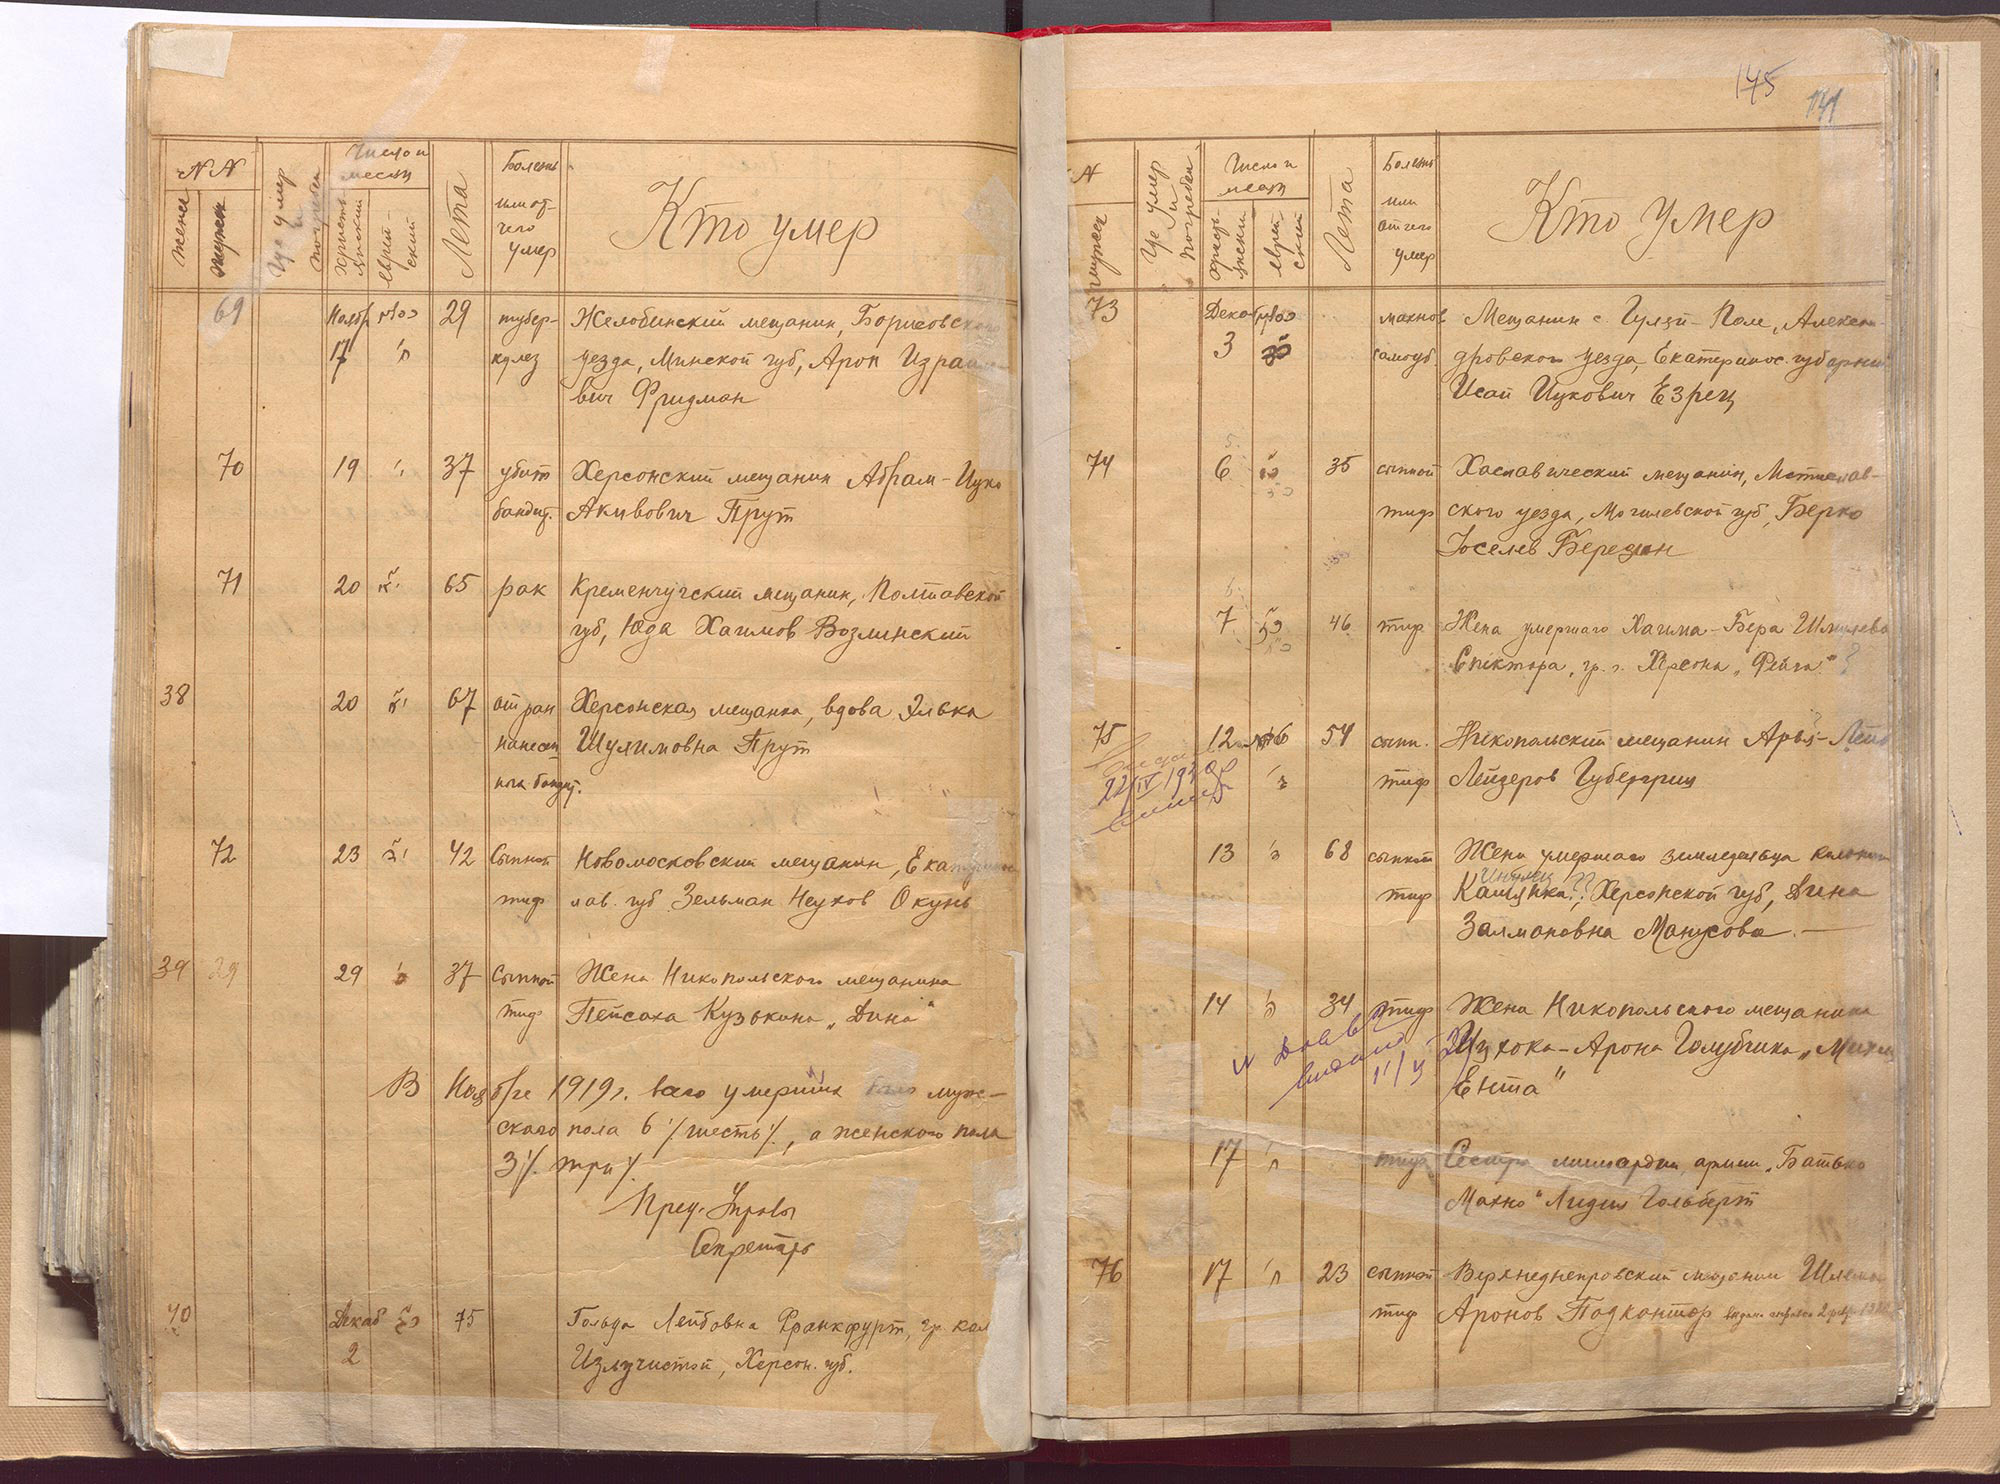 N N
Жене
Мужек
Где умер
и
погребен
Число и
месяц
Христь-
янский
Еврей-
ский
Лета
Болезнь
или от-
чего
умер
Кто умер
69 Ноябр 29 тубер- Желобинский мещанин, Борисовского
17 кулез уезда, Минской губ, Арон Израиле
вич Фридман
70 19 37 убит Херсонский мещанин Абрам-Ицко
бандит. Акивович Прут
71 20 65 рак Кременчугский мещанин, Полтавской
губ, Юда Хаимов Возлинский
38 20 67 от ран Херсонская мещанка, вдова Элька
нанесен Шулимовна Прут
ных бандит.
72 23 42 Сыпной Новомосковский мещанин, Екатерино
тиф слав. губ Зельман Неухов Окунь
39 29 29 37 Сыпной Жена Никопольского мещанина
тиф Пейсаха Кузькина „Дина"
В Ноябре 1919г. всего умерших было муж-
ского пола 6 /шесть/, а женского пола
3/. три/.
Пред. Управы
Секретарь
40 Декаб 75 Гольда Лейбовна Франкфурт, гр. кол
2 Излучистой, Херсон. губ.
145
141
N
мужек
Где умер
и
погребен
Число и
месяц
Христь-
янский
Еврей-
ский
Лета
Болезнь
или
отчего
умер
Кто умер
73 Декаб махнов Мещанин с. Гуляй-Поле, Алексан-
3 самоуб. дровского уезда, Екатеринос. губернии
Исай Ицкович Езрец
74 6 35 сыпной Хославический мещанин, Мстислав-
тиф ского уезда, Могилевской губ, Берко
Иоселев Березин
7 46 тиф Жена умершаго Хаима-Бера Шмулева
Спіктора, гр. г. Херсона „Фейга" ?
75 12 54 сыпн. Никопольский мещанин Арья-Лейб
22/IV 193 тиф Лейзеров Губергриц
13 68 сыпной Жена умершаго земледельца колонии
тиф Камянка??, Херсонской губ, Дина
Залмановна Манусова. —
14 34 тиф Жена Никопольского мещанина
Ицхока-Арона Голубчика „
Ента"
17 тиф Сестра милосердия, армии „Батько
Махно" Лидия Гольберт
76 17 23 сыпной Верхнеднепровский мещанин Шлема
тиф Аронов Подкантор